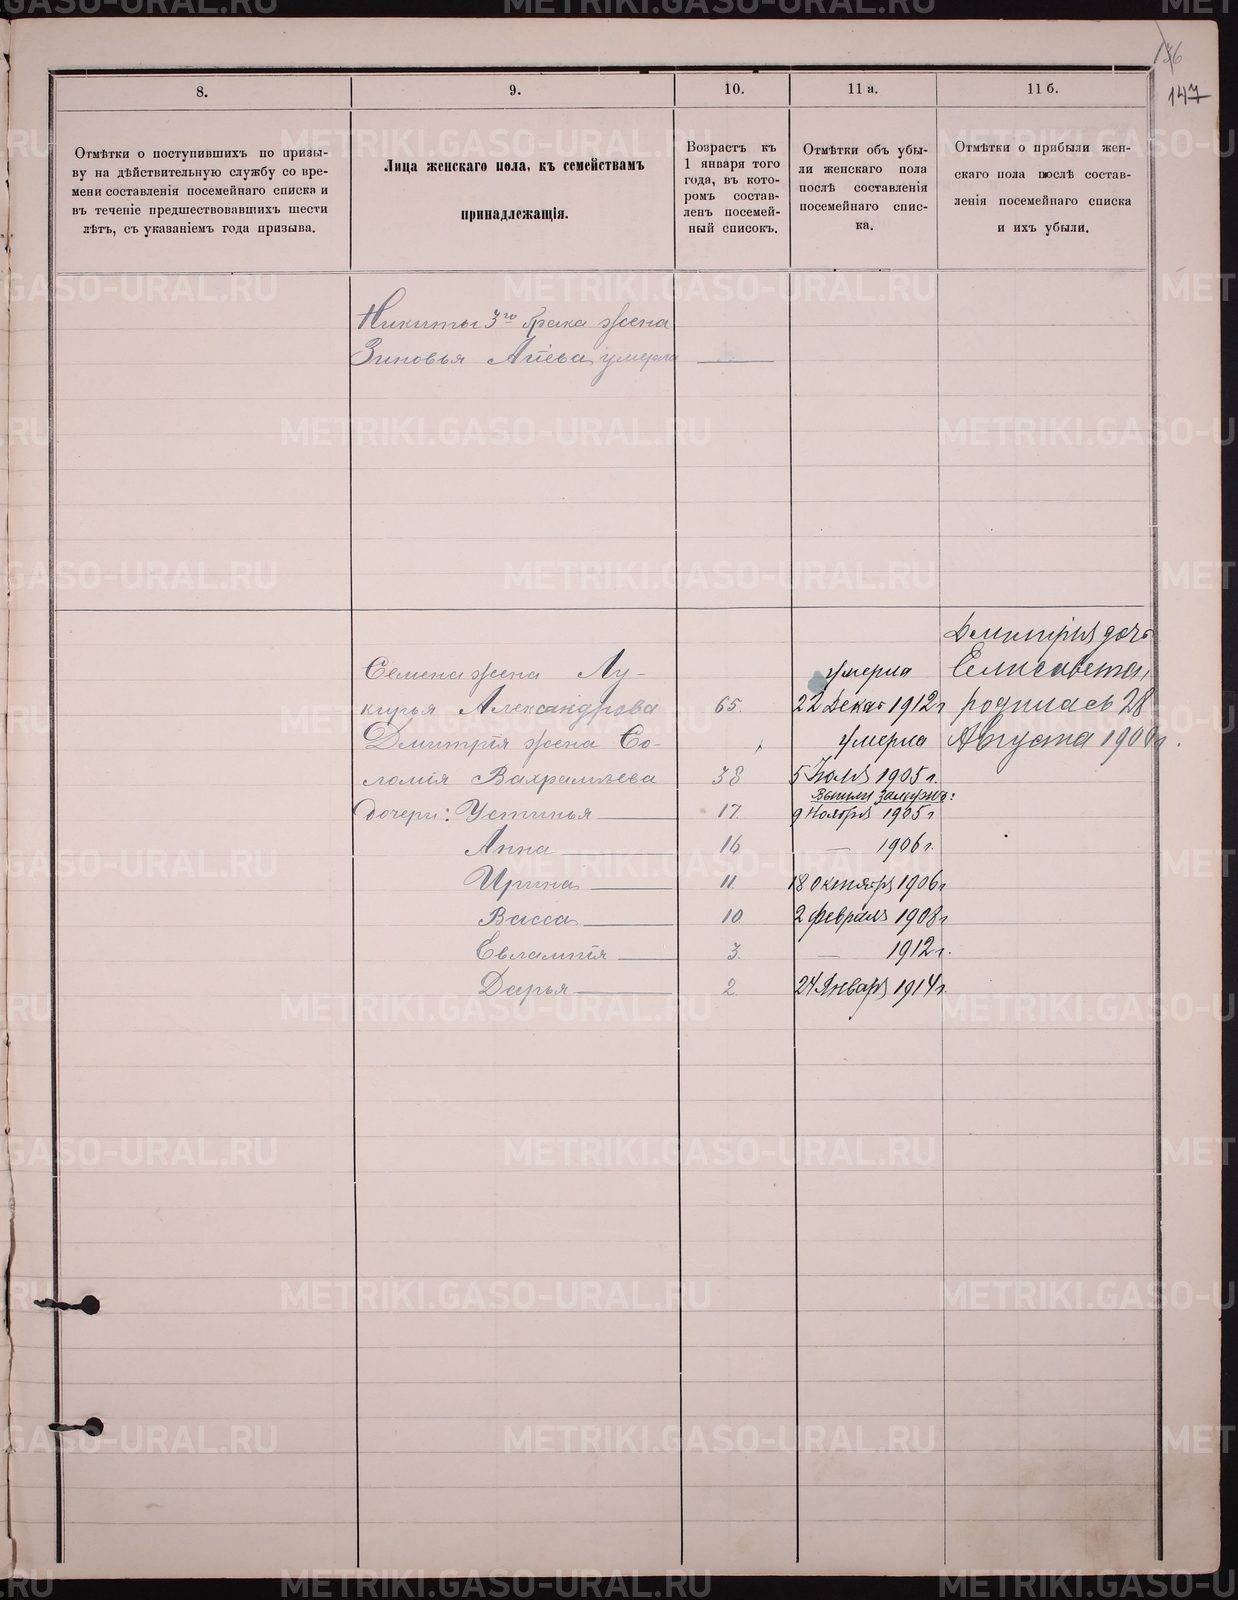 136
147
8.
9.
10.
11 а.
11 б.
Отмѣтки о поступившихъ по призы-
ву на дѣйствительную службу со вре-
мени составленія посемейнаго списка и
въ теченіе предшествовавшихъ шести
лѣтъ, съ указаніемъ года призыва.
Лица женскаго пола, къ семействамъ
принадлежащія.
Возрастъ къ
1 января того
года, въ кото-
ромъ состав-
ленъ посемей-
ный списокъ.
Отмѣтки объ убы-
ли женскаго пола
послѣ составленія
посемейнаго спис-
ка.
Отмѣтки о прибыли жен-
скаго пола послѣ состав-
ленія посемейнаго списка
и ихъ убыли.
Никиты 3го брака жена
Зиновья умерла —
Дмитрія дочь
Семена жена Лу- умерла Елисавета,
керья Александрова 65. 22 Декаб 1912 г родилась 28
Дмитрія жена Со- умерла Августа
ломія Вахрамѣева 38 5 Іюля 1905 г.
Вышли замужъ:
Дочери: Устинья 17. 9 Ноября 1905 г
Анна 16 — 1906 г.
Ирина 11. 18 октября 1906 г
Васса 10. 2 февраля 1908 г
Евлампія 3. — 1912 г.
Дарья 2 24 Января 1914 г.
METRIKI.GASO-URAL.RU